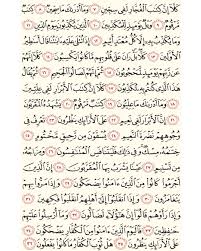 كَلَّا إِنَّ كِتَٰبَ ٱلْفُجَّارِ لَفِى سِجِّينٍ ٧ وَمَآ أَدْرَىٰكَ مَا سِجِّينٌ ٨ كِتَٰبٌ
مَّرْقُومٌ ٩ وَيْلٌ يَوْمَئِذٍ لِّلْمُكَذِّبِينَ ١٠ ٱلَّذِينَ يُكَذِّبُونَ بِيَوْمِ ٱلدِّينِ ١١
وَمَا يُكَذِّبُ بِهِۦٓ إِلَّا كُلُّ مُعْتَدٍ أَثِيمٍ ١٢ إِذَا تُتْلَىٰ عَلَيْهِ ءَايَٰتُنَا قَالَ أَسَٰطِيرُ
ٱلْأَوَّلِينَ ١٣ كَلَّا بَلْ رَانَ عَلَىٰ قُلُوبِهِم مَّا كَانُوا۟ يَكْسِبُونَ ١٤ كَلَّآ إِنَّهُمْ
عَن رَّبِّهِمْ يَوْمَئِذٍ لَّمَحْجُوبُونَ ١٥ ثُمَّ إِنَّهُمْ لَصَالُوا۟ ٱلْجَحِيمِ ١٦ ثُمَّ يُقَالُ
هَٰذَا ٱلَّذِى كُنتُم بِهِۦ تُكَذِّبُونَ ١٧ كَلَّآ إِنَّ كِتَٰبَ ٱلْأَبْرَارِ لَفِى عِلِّيِّينَ
١٨ وَمَآ أَدْرَىٰكَ مَا عِلِّيُّونَ ١٩ كِتَٰبٌ مَّرْقُومٌ ٢٠ يَشْهَدُهُ ٱلْمُقَرَّبُونَ
٢١ إِنَّ ٱلْأَبْرَارَ لَفِى نَعِيمٍ ٢٢ عَلَى ٱلْأَرَآئِكِ يَنظُرُونَ ٢٣ تَعْرِفُ فِى
وُجُوهِهِمْ نَضْرَةَ ٱلنَّعِيمِ ٢٤ يُسْقَوْنَ مِن رَّحِيقٍ مَّخْتُومٍ ٢٥
خِتَٰمُهُۥ مِسْكٌ وَفِى ذَٰلِكَ فَلْيَتَنَافَسِ ٱلْمُتَنَٰفِسُونَ ٢٦ وَمِزَاجُهُۥ
مِن تَسْنِيمٍ ٢٧ عَيْنًا يَشْرَبُ بِهَا ٱلْمُقَرَّبُونَ ٢٨ إِنَّ ٱلَّذِينَ
أَجْرَمُوا۟ كَانُوا۟ مِنَ ٱلَّذِينَ ءَامَنُوا۟ يَضْحَكُونَ ٢٩ وَإِذَا مَرُّوا۟ بِهِمْ
يَتَغَامَزُونَ ٣٠ وَإِذَا ٱنقَلَبُوٓا۟ إِلَىٰٓ أَهْلِهِمُ ٱنقَلَبُوا۟ فَكِهِينَ ٣١
وَإِذَا رَأَوْهُمْ قَالُوٓا۟ إِنَّ هَٰٓؤُلَآءِ لَضَآلُّونَ ٣٢ وَمَآ أُرْسِلُوا۟ عَلَيْهِمْ
حَٰفِظِينَ ٣٣ فَٱلْيَوْمَ ٱلَّذِينَ ءَامَنُوا۟ مِنَ ٱلْكُفَّارِ يَضْحَكُونَ ٣٤
عَلَى ٱلْأَرَآئِكِ يَنظُرُونَ ٣٥ هَلْ ثُوِّبَ ٱلْكُفَّارُ مَا كَانُوا۟ يَفْعَلُونَ ٣٦